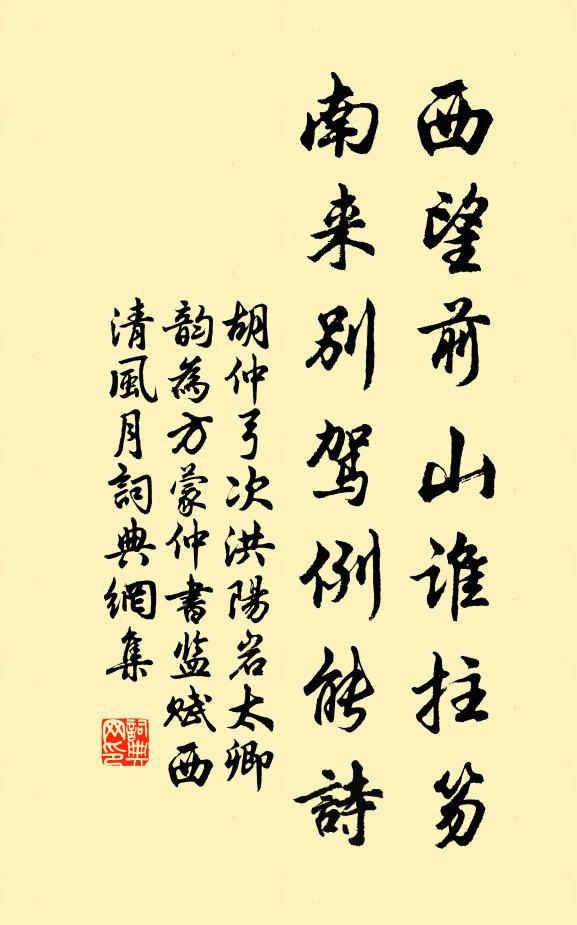 西望前山谁拄笏
南来别驾例能詩
胡仲弓次洪陽岩太卿
韵為方蒙仲書监赋西
清風月詞典網集
詞典網印